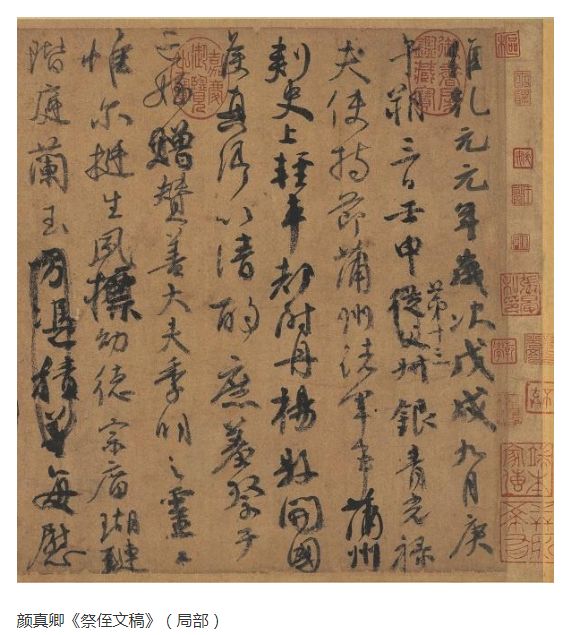 維乾元元年歲次戊戌九月庚
午朔三日壬申第十三從父叔銀青光祿
夫使持節蒲州諸軍事蒲州
刺史上輕車都尉丹楊縣開國
侯真卿以清酌庶羞祭于
亡姪贈贊善大夫季明之靈曰
惟尔挺生夙標幼德宗廟瑚璉
階庭蘭玉方憑積善每慰
嘉慶御覽之寶
颜真卿《祭侄文稿》（局部）